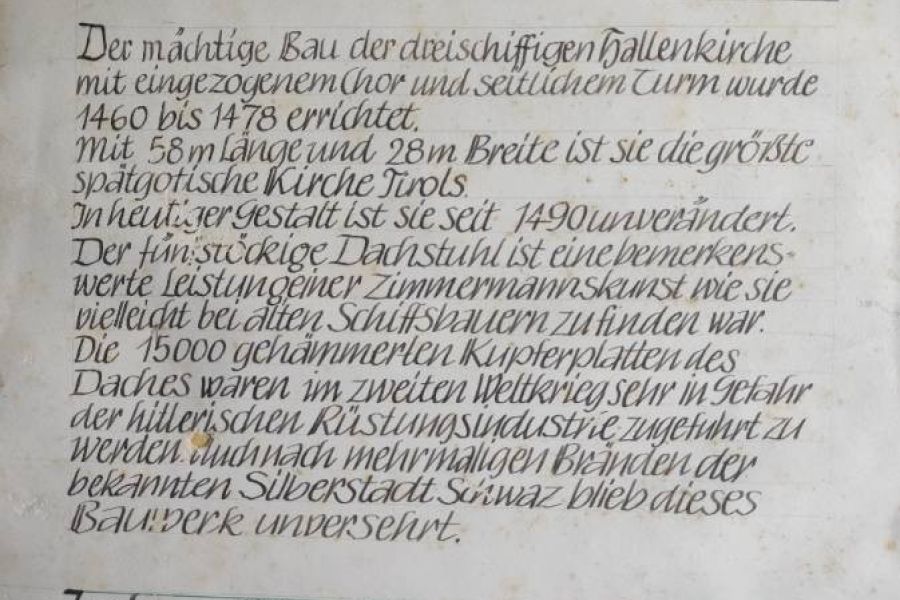 Der mächtige Bau der dreischiffigen Hallenkirche
mit eingezogenem Chor und seitlichem Turm wurde
1460 bis 1478 errichtet.
Mit 58m Länge und 28m Breite ist sie die größte
spätgotische Kirche Tirols.
In heutiger Gestalt ist sie seit 1490 unverändert.
Der fünfstöckige Dachstuhl ist eine bemerkens-
werte Leistung einer Zimmermannskunst wie sie
vielleicht bei alten Schiffsbauern zu finden war.
Die 15000 gehämmerten Kupferplatten des
Daches waren im zweiten Weltkrieg sehr in Gefahr
der hitlerischen Rüstungsindustrie zugeführt zu
werden. Auch nach mehrmaligen Bränden der
bekannten Silberstadt Schwaz blieb dieses
Bauwerk unversehrt.